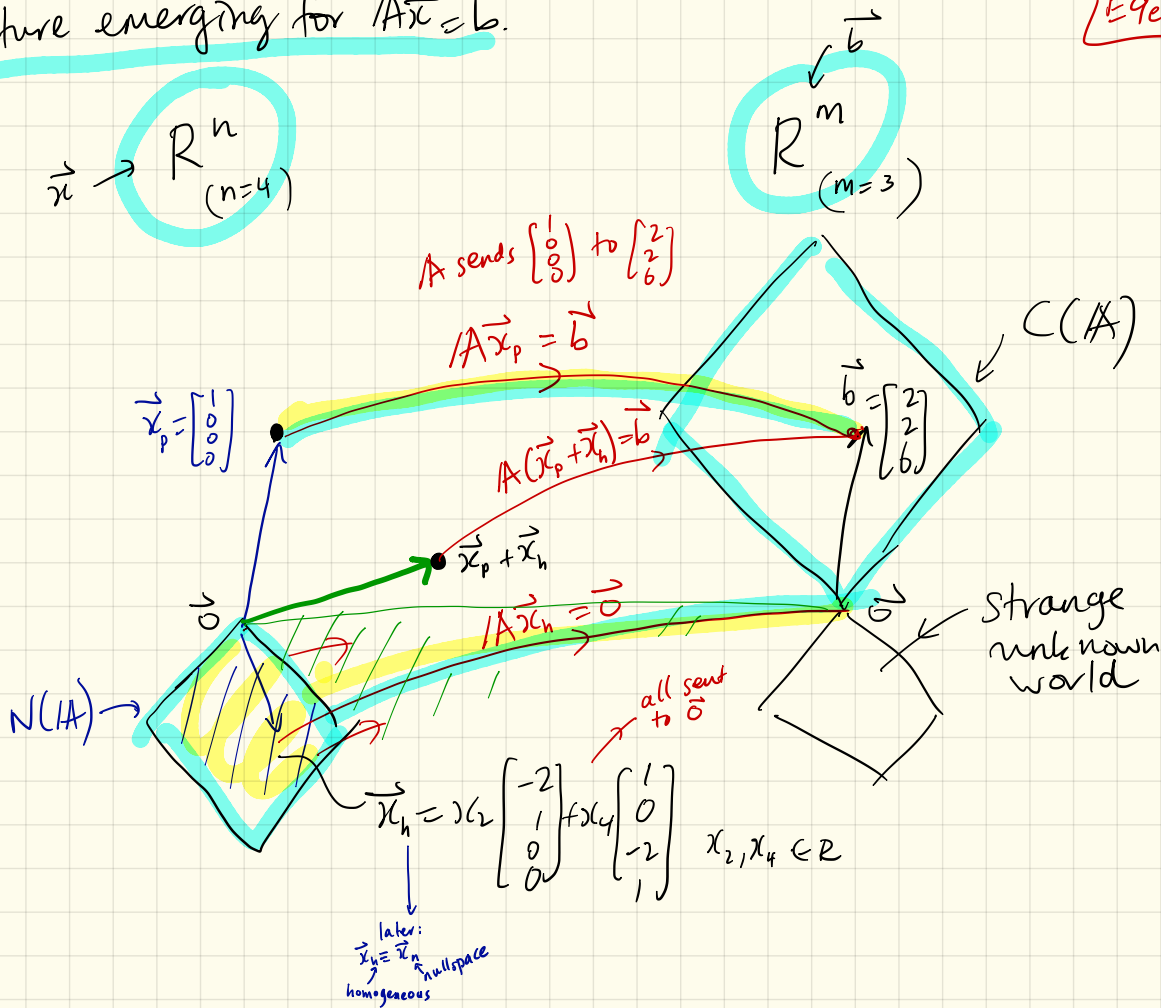 ture emerging for 𝔸x⃗ = b⃗.
x⃗ → Rⁿ (n=4)
b⃗
Rᵐ (m=3)
𝔸 sends [1 0 0 0] to [2 2 6]
𝔸x⃗ₚ = b⃗
C(𝔸)
x⃗ₚ = [1 0 0 0]
b⃗ = [2 2 6]
𝔸(x⃗ₚ + x⃗ₕ) = b⃗
x⃗ₚ + x⃗ₕ
0⃗
𝔸x⃗ₕ = 0⃗
0⃗
strange
unknown
world
N(𝔸)
all sent
to 0⃗
x⃗ₕ = x₂ [-2 1 0 0] + x₄ [1 0 -2 1] x₂, x₄ ∈ R
later:
x⃗ₕ ≡ x⃗ₙ
nullspace
homogeneous